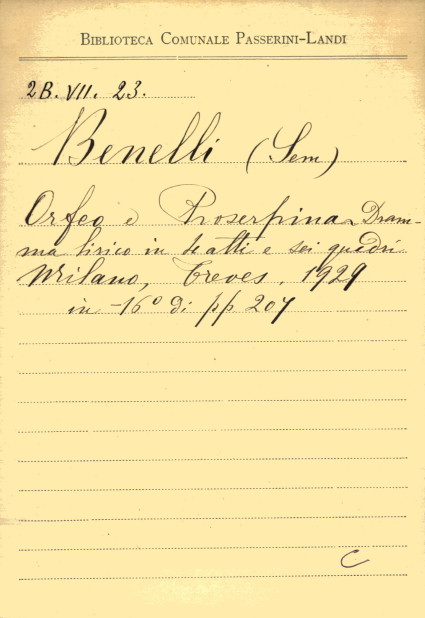 BIBLIOTECA COMUNALE PASSERINI-LANDI
2B. VII. 23.
Benelli (Sem)
Orfeo e Proserpina Dram-
ma lirico in atti e sei quadri
Milano, Treves. 1929
in -16° di pp 207
C